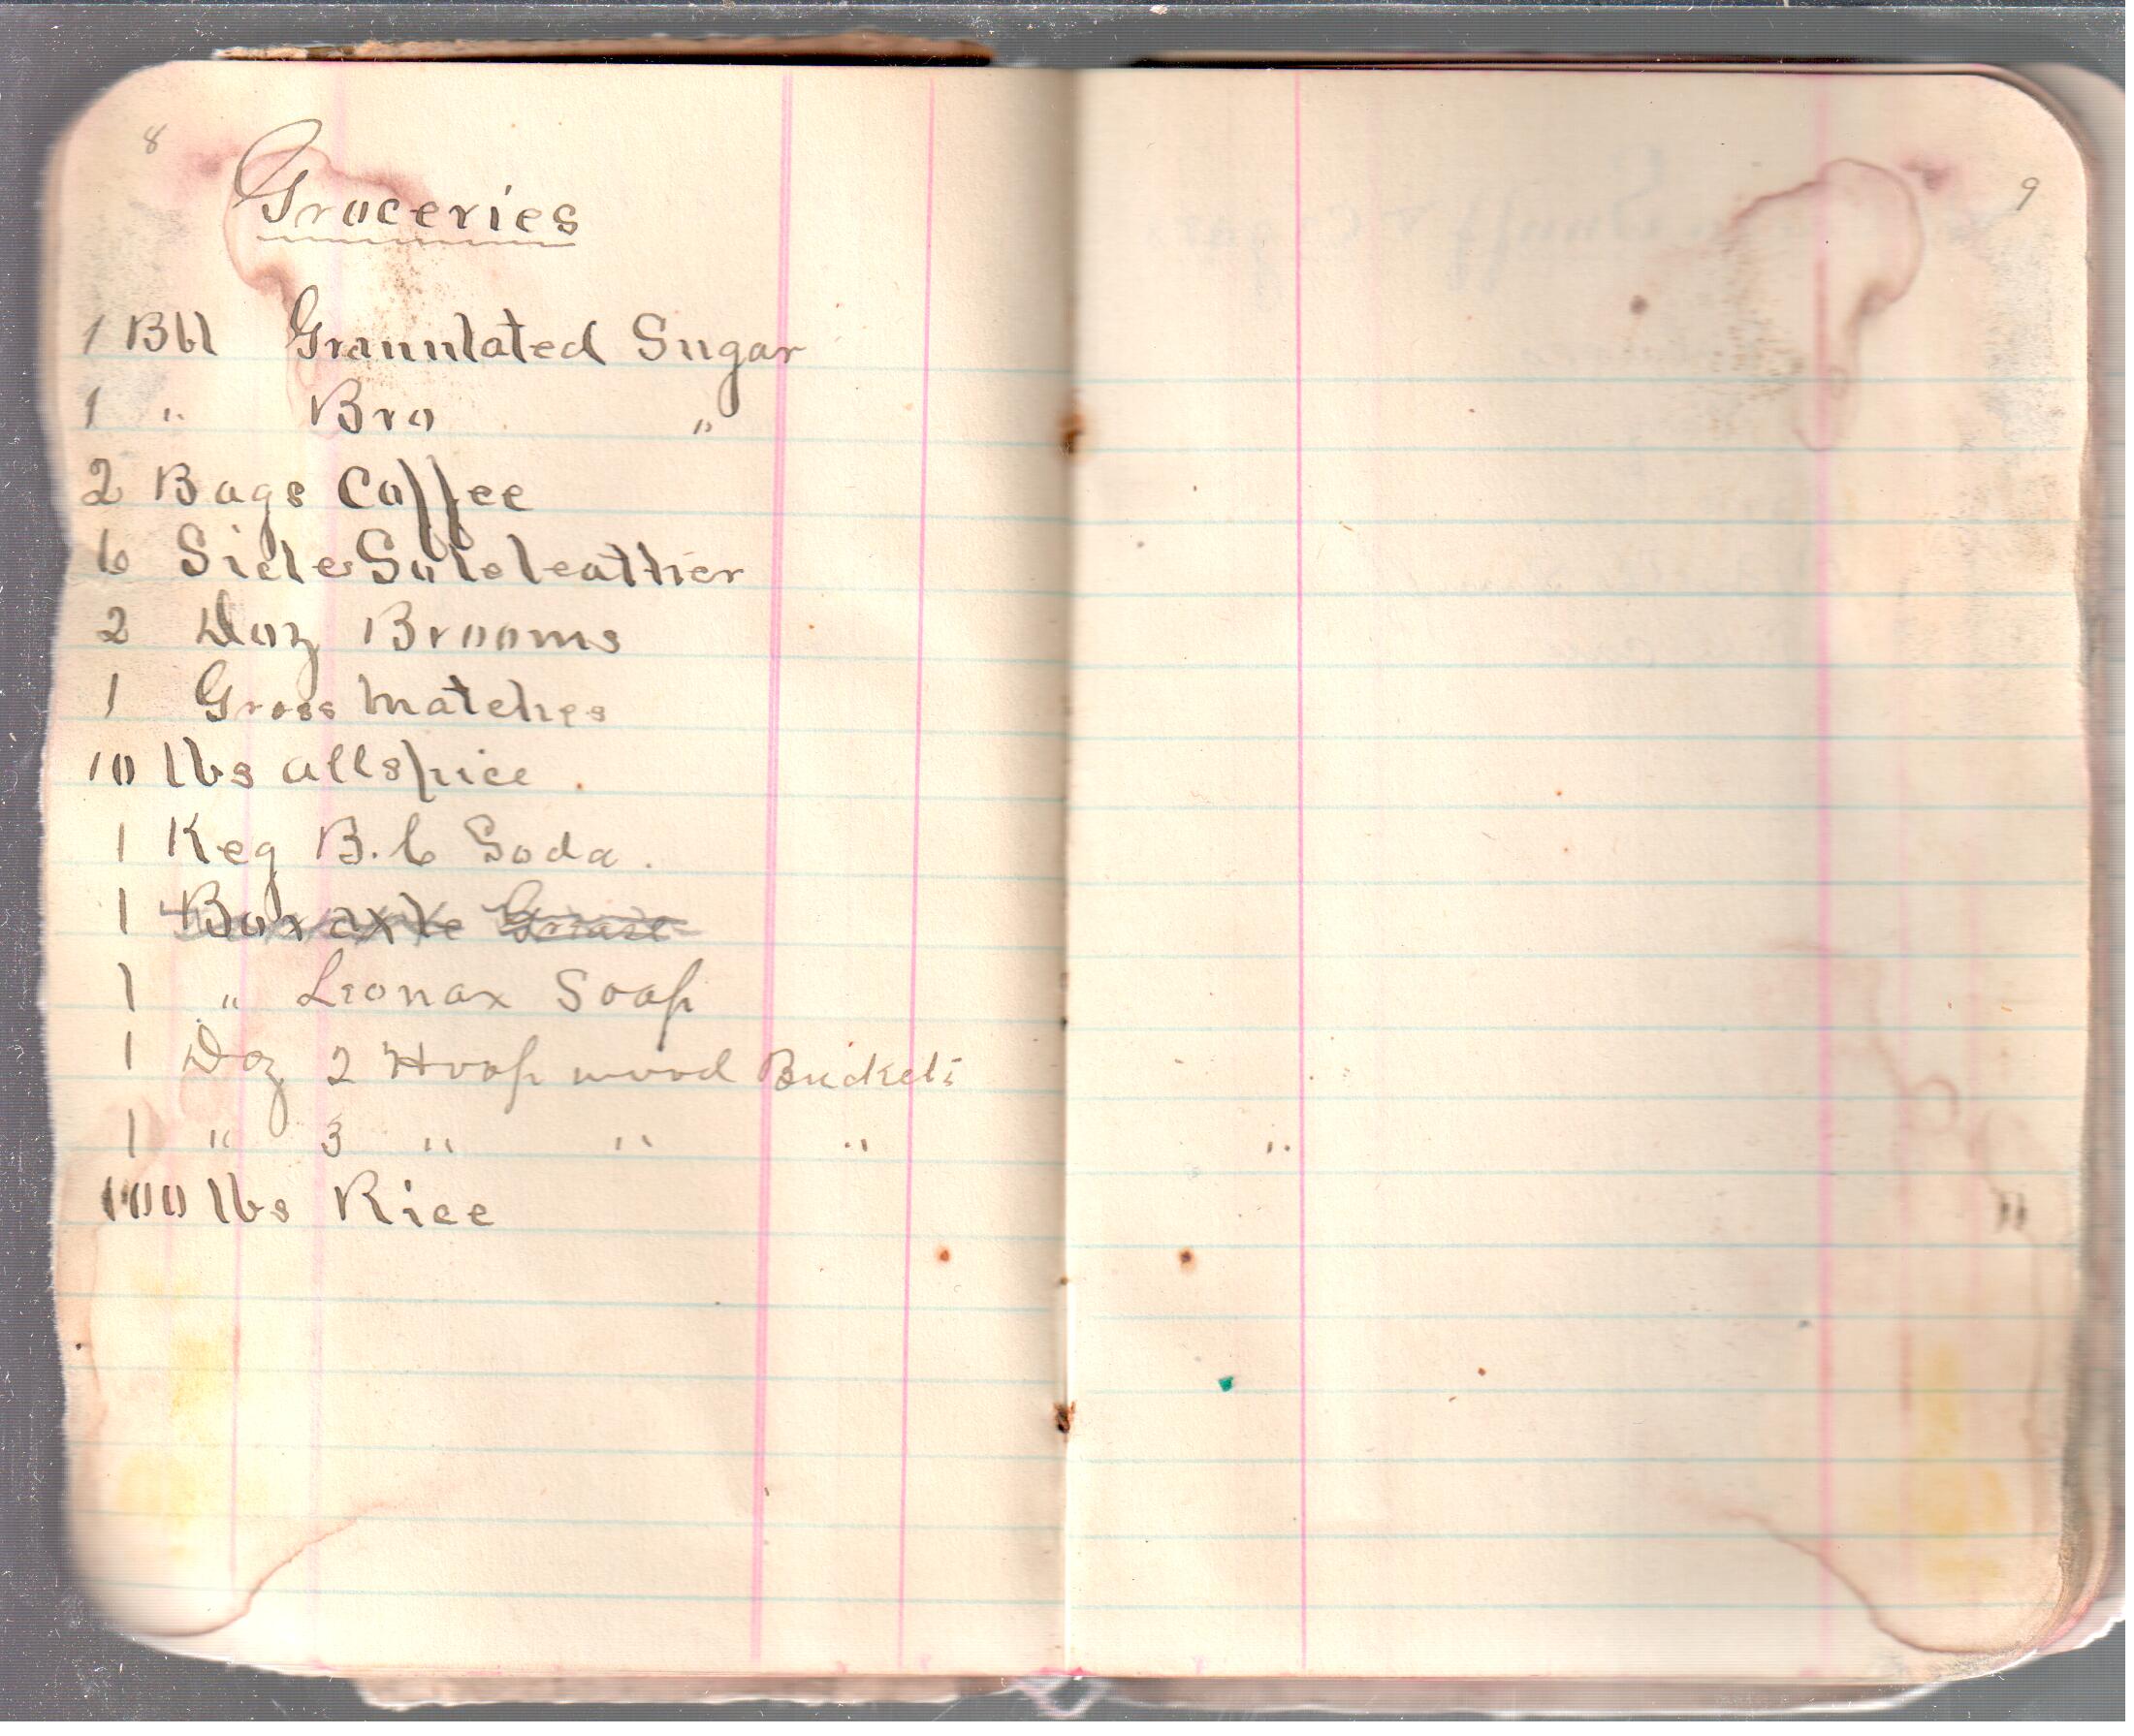 8
Groceries
1 Bbl Granulated Sugar
1 " Bro "
2 Bags Coffee
6 Sides Sole leather
2 Doz Brooms
1 Gross matches
10 lbs allspice
1 Keg B.C Soda.
1 Box axle Grease
1 " Leonax Soap
1 Doz 2 Hoop wood Buckets
1 " 3 " " " "
100 lbs Rice
9